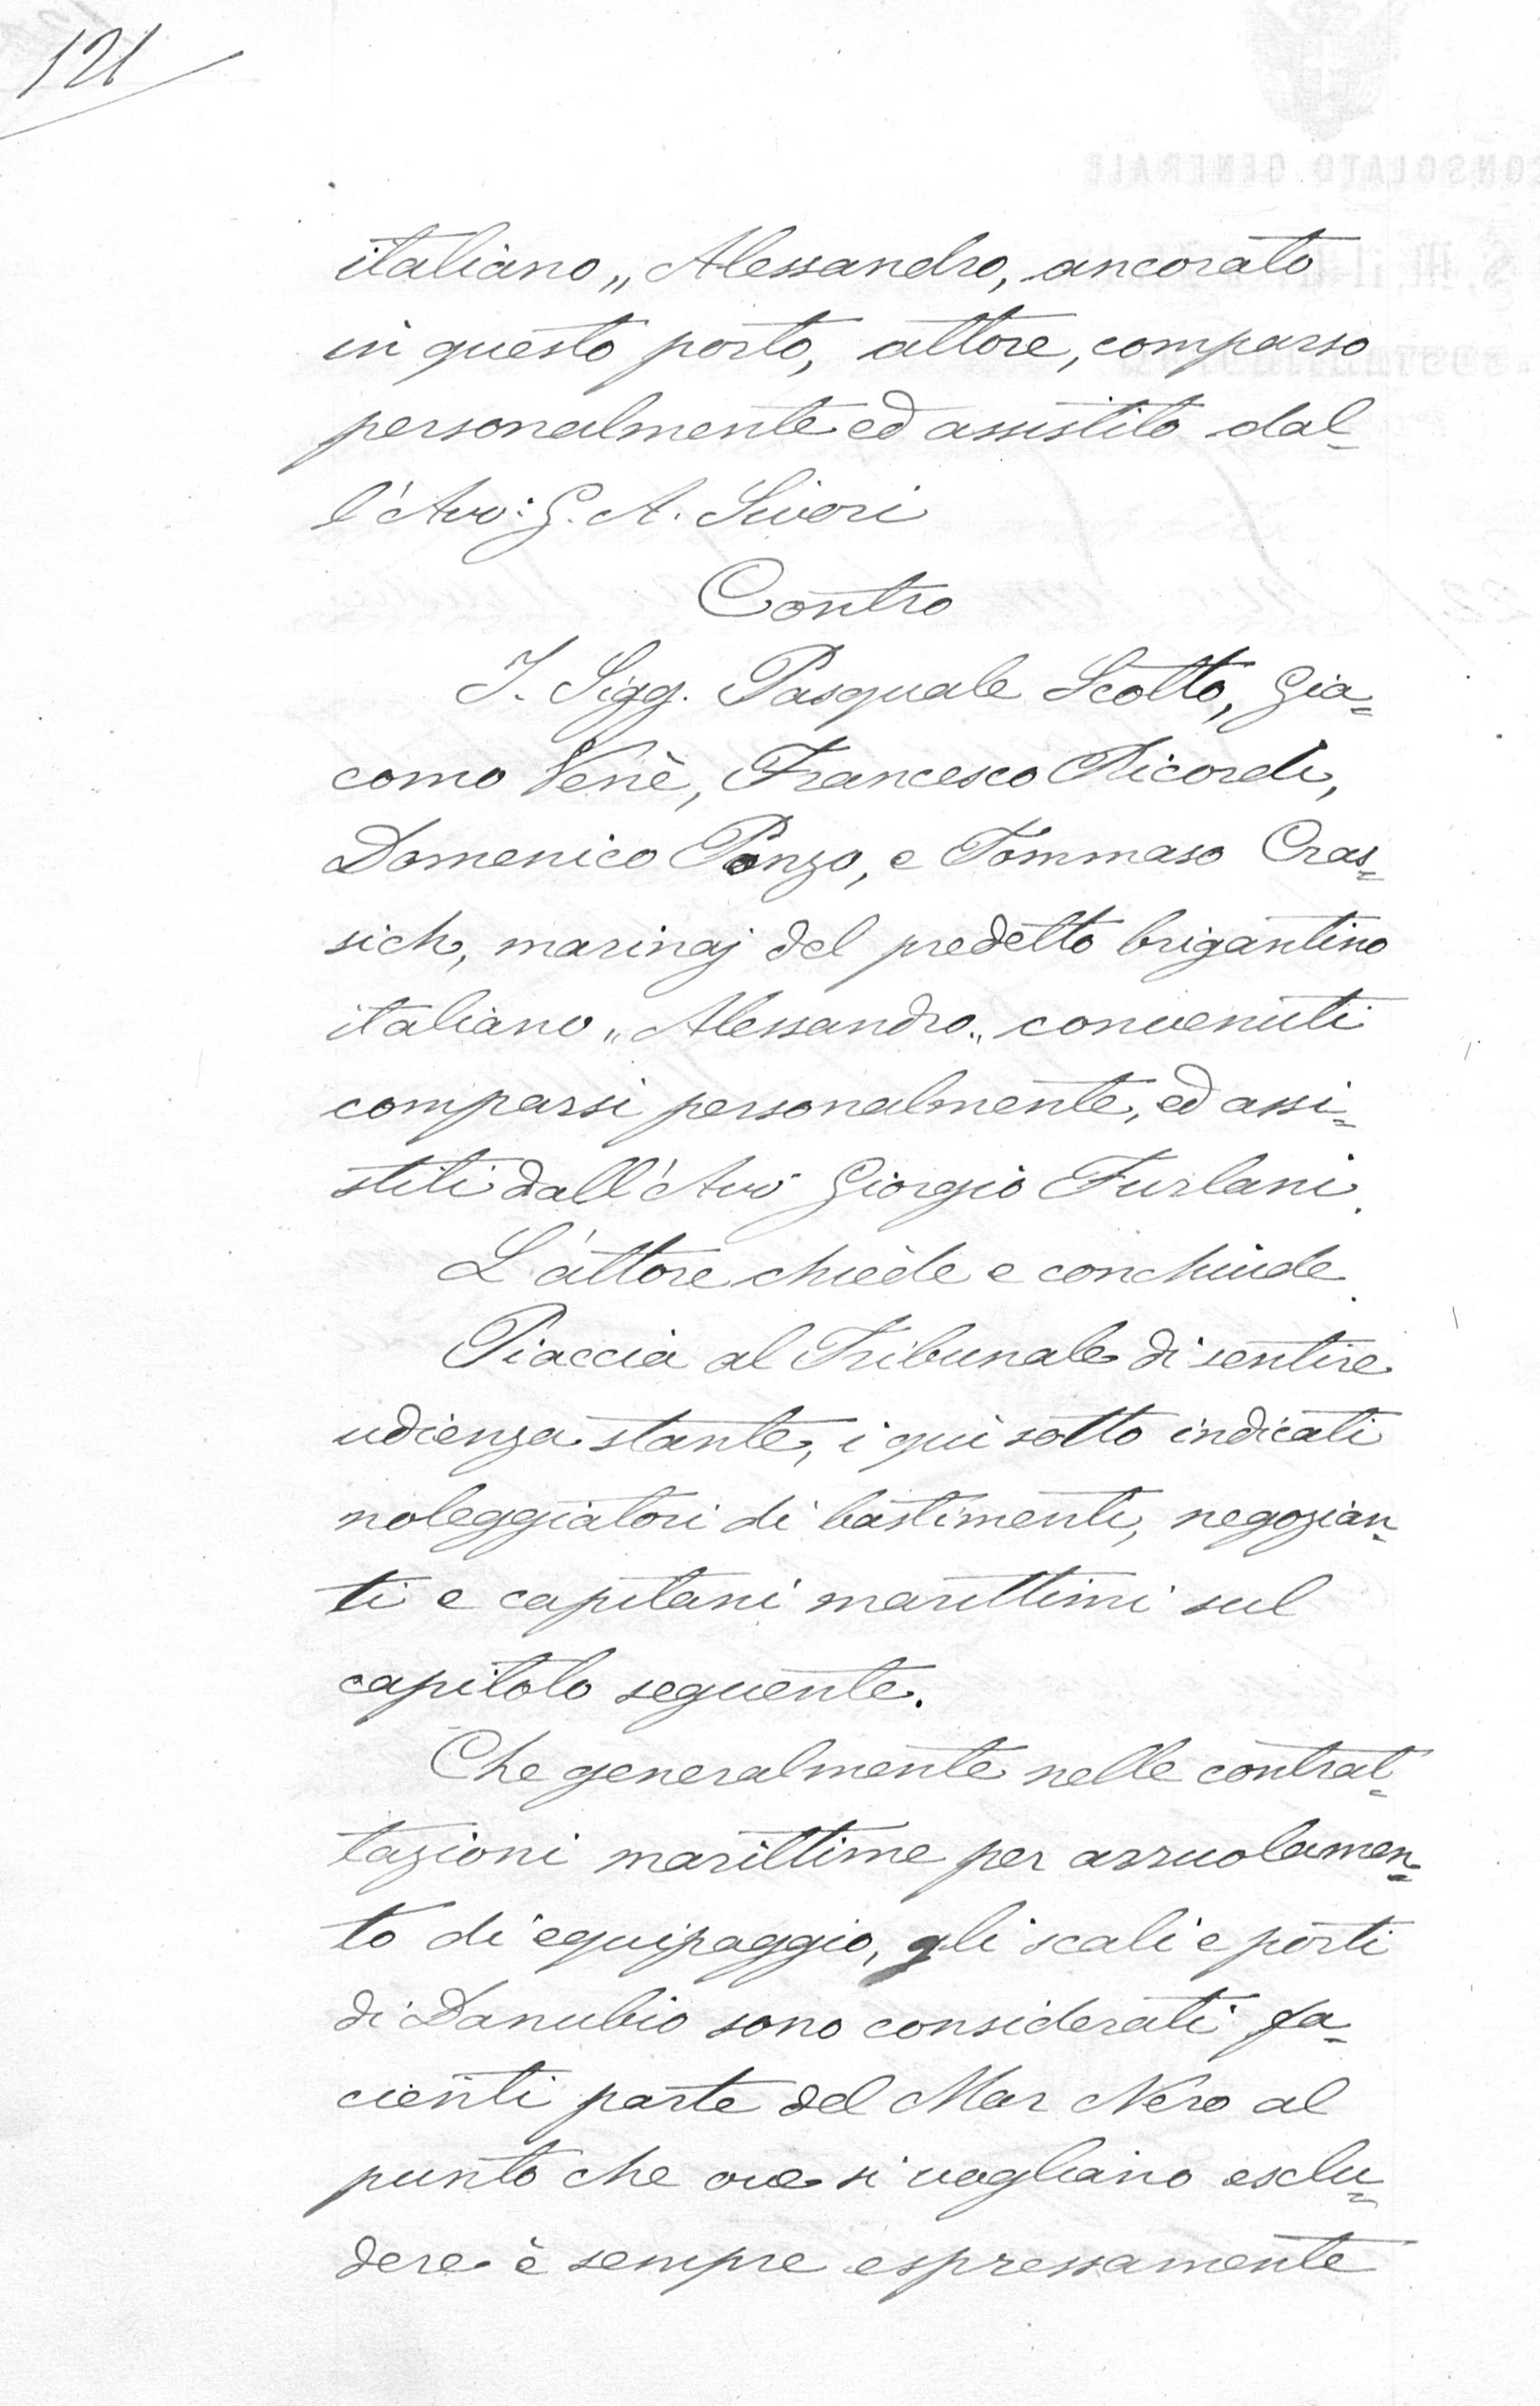 121
italiano „ Alessandro, ancorato
in questo porto, attore, comparso
personalmente ed assistito dal=
l'Avv: G. A. Sivori
Contro
I. Sigg. Pasquale Scotto, Gia=
como Venè, Francesco Ricordi,
Domenico Ponzo, e Tommaso Cras=
sich, marinaj del predetto brigantino
italiano „ Alessandro „ convenuti
comparsi personalmente, ed assi=
stiti dall'Avv Giorgio Furlani.
L'attore chiede e conchiude.
Piaccia al Tribunale di sentire
udienza stante, i quì sotto indicati
noleggiatori di bastimenti, negozian=
ti e capitani marittimi sul
capitolo seguente.
Che generalmente nelle contrat=
tazioni marittime per arruolamen=
to di equipaggio, gli scali e porti
di Danubio sono considerati fa=
cienti parte del Mar Nero al
punto che ove si vogliano esclu=
dere è sempre espressamente